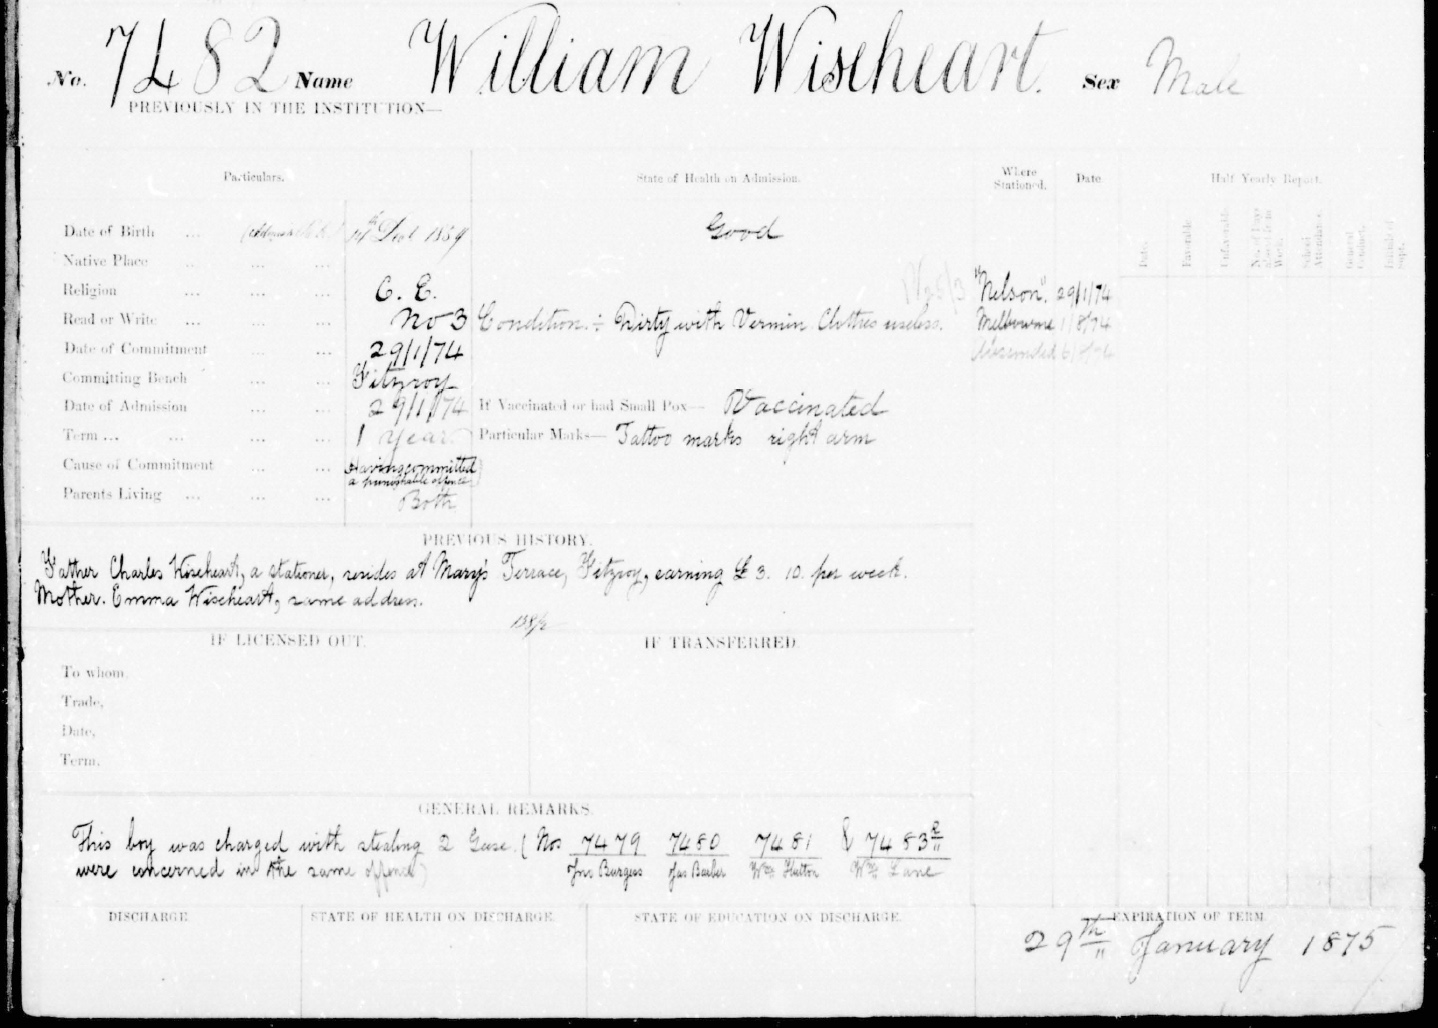 No. 7482 Name William Wiseheart. Sex Male
PREVIOUSLY IN THE INSTITUTION—
Particulars.
State of Health on Admission.
Where Stationed.
Date.
Half Yearly Report.
Date of Birth ... 14th Sept 1859
Good
Date.
Favorable
Unfavorable
School Attendance.
General Conduct.
Native Place ... ... ...
Religion ... ... ... C. E.
"Nelson". 29/1/74
Read or Write ... ... ... No 3
Condition :- Dirty with Vermin. Clothes useless.
Melbourne 1/8/74
Date of Commitment ... ... 29/1/74
Absconded 6/8/74
Committing Bench ... ... Fitzroy
Date of Admission ... ... 29/1/74
If Vaccinated or had Small Pox— Vaccinated
Term ... ... ... ... 1 year
Particular Marks— Tattoo marks right arm
Cause of Commitment ... ... Having committed
a punishable offence
Parents Living ... ... ... Both
PREVIOUS HISTORY.
Father Charles Wiseheart, a stationer, resides at Mary's Terrace, Fitzroy, earning £3. 10. per week.
Mother. Emma Wiseheart, same address.
IF LICENSED OUT.
IF TRANSFERRED.
To whom,
Trade,
Date,
Term,
GENERAL REMARKS.
This boy was charged with stealing 2 Geese. (Nos 7479 7480 7481 & 7483
were concerned in the same offence) Jno Burgess Jas Barber Wm Hutton Wm Lane
DISCHARGE
STATE OF HEALTH ON DISCHARGE.
STATE OF EDUCATION ON DISCHARGE.
EXPIRATION OF TERM.
29th January 1875